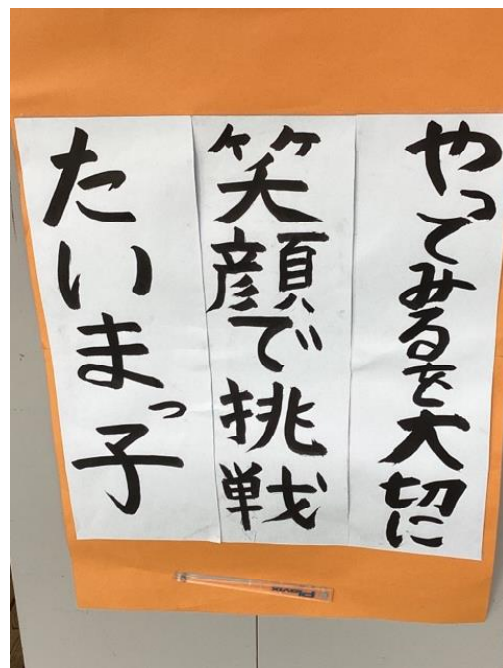 やってみるを大切に
笑顔で挑戦
たいまっ子